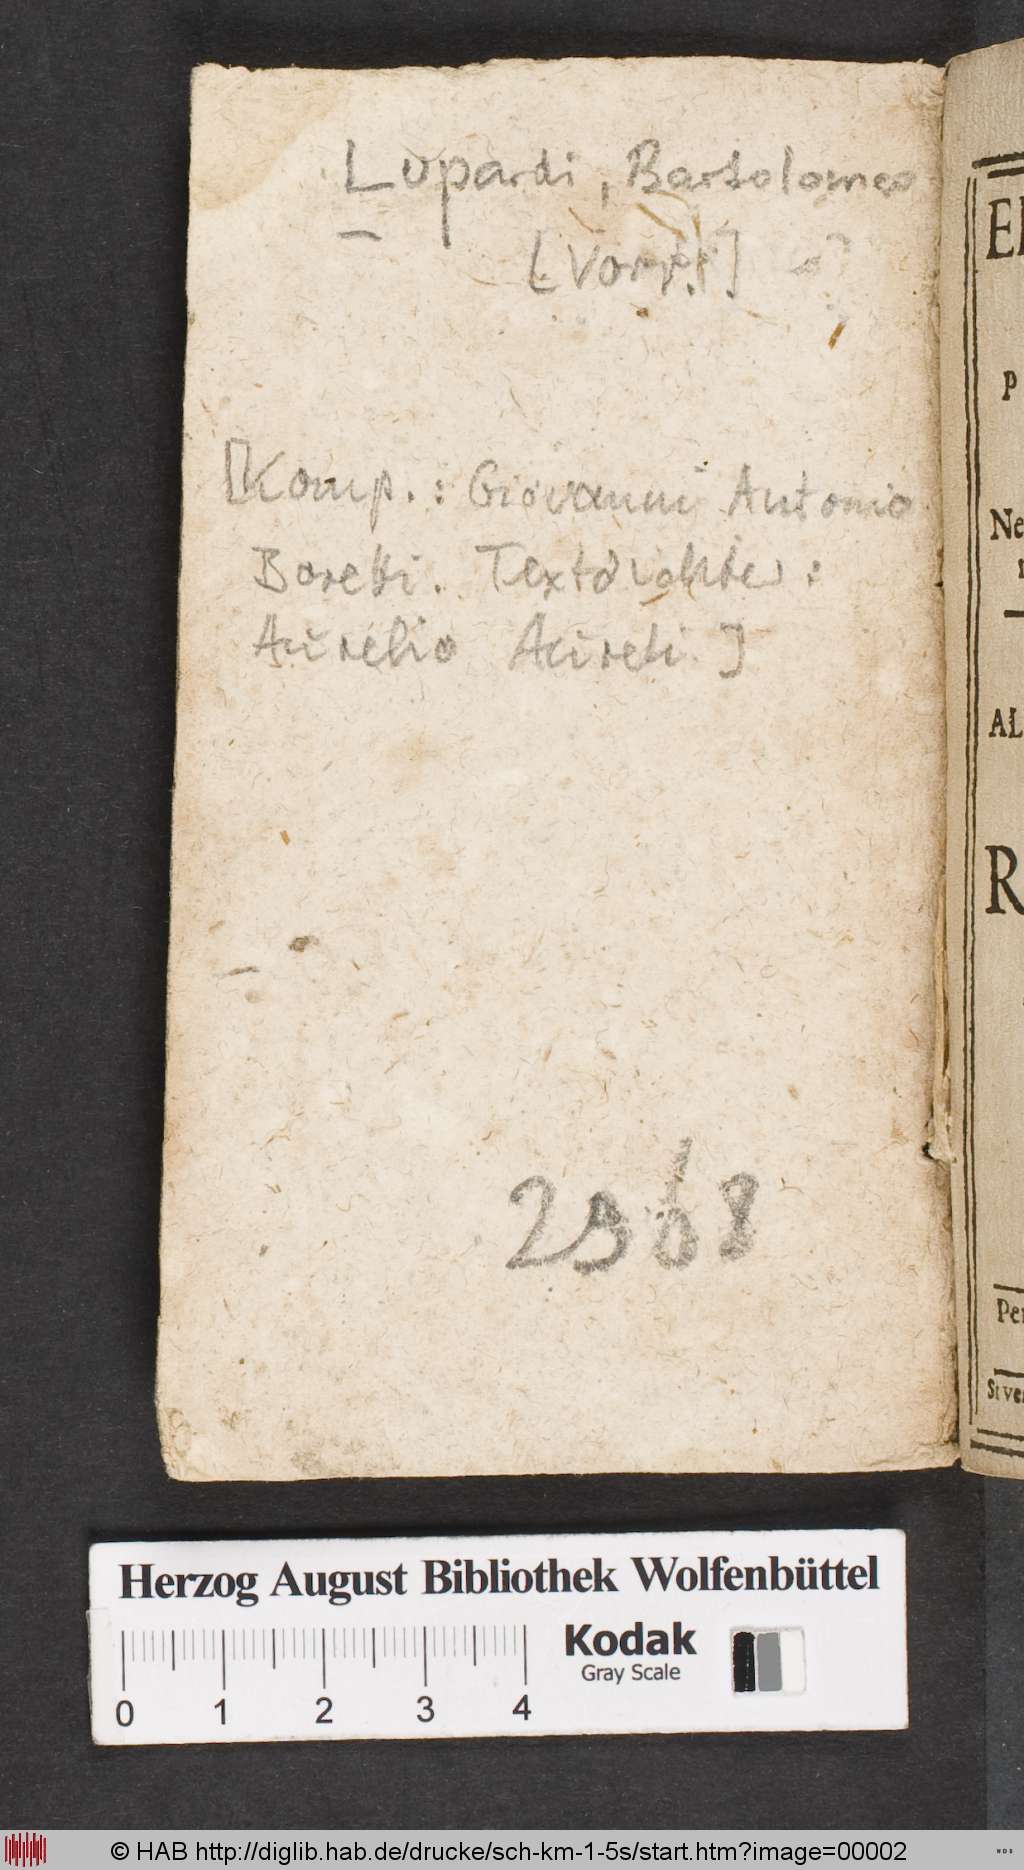 Lupardi, Bartolomeo
[Vorr.]
[Komp.: Giovanni Antonio
Boretti. Textdichter:
Aurelio Aureli.]
2968
EI
P
Ne
AL
R
Per
Si ve
Herzog August Bibliothek Wolfenbüttel
Kodak
Gray Scale
0 1 2 3 4
© HAB http://diglib.hab.de/drucke/sch-km-1-5s/start.htm?image=00002